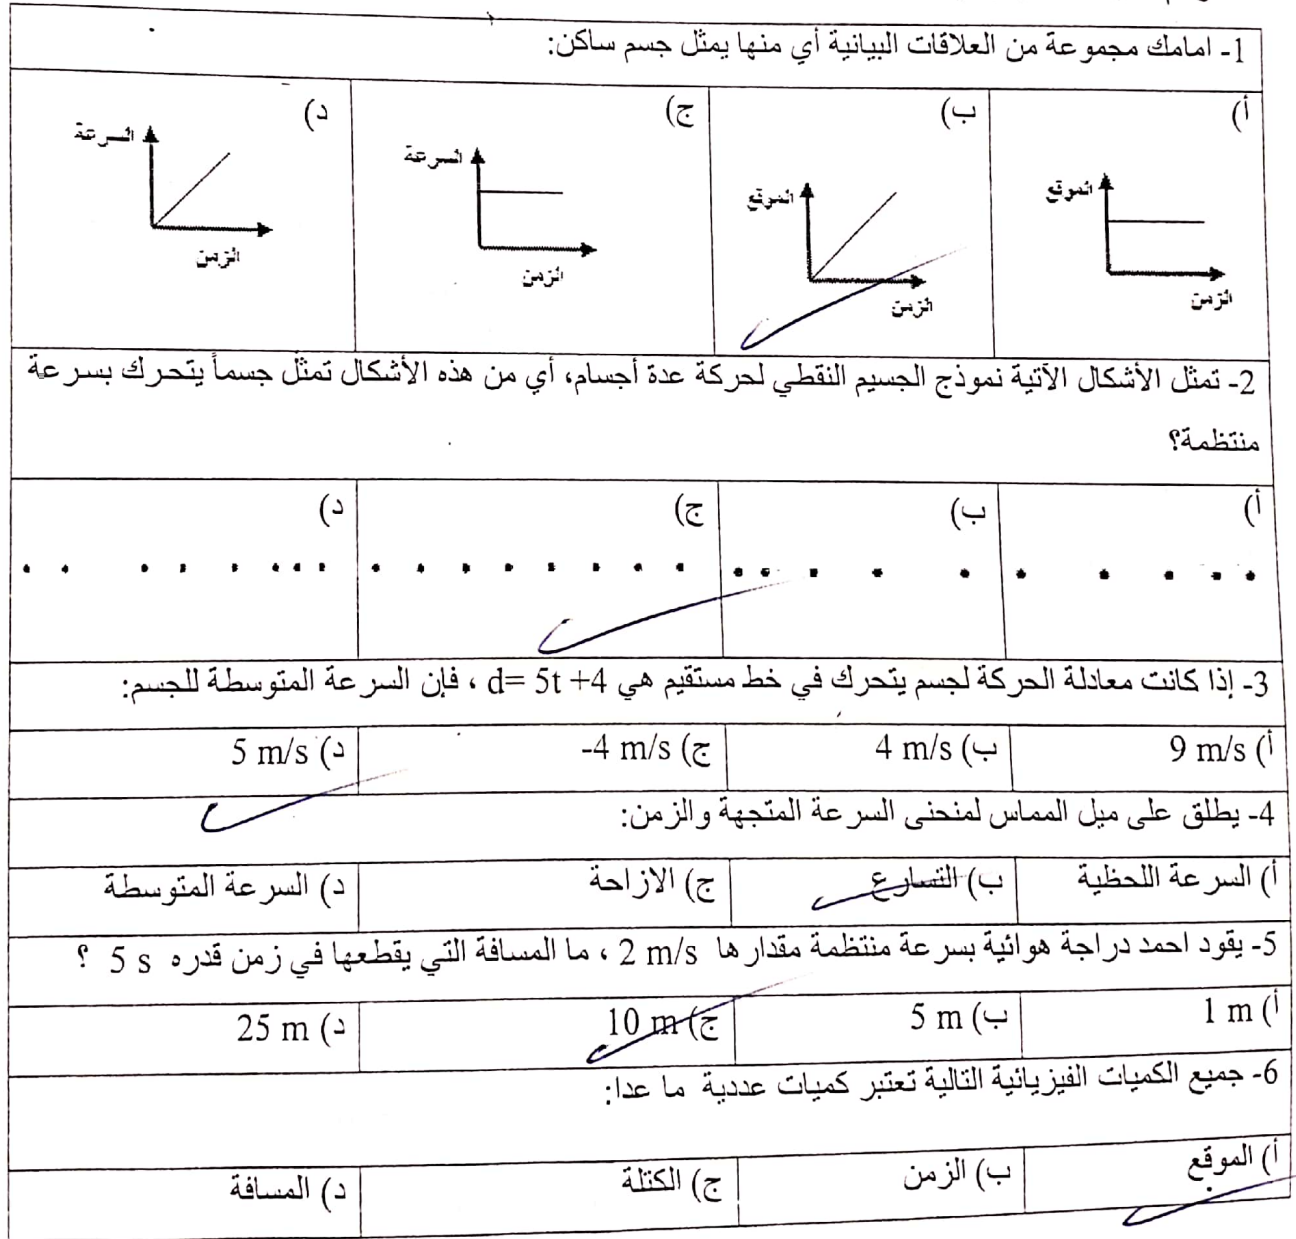 1- امامك مجموعة من العلاقات البيانية أي منها يمثل جسم ساكن:
أ)
الموقع
الزمن
ب)
الموقع
الزمن
ج)
السرعة
الزمن
د)
السرعة
الزمن
2- تمثل الأشكال الآتية نموذج الجسيم النقطي لحركة عدة أجسام، أي من هذه الأشكال تمثل جسماً يتحرك بسرعة
منتظمة؟
أ) ب) ج) د)
3- إذا كانت معادلة الحركة لجسم يتحرك في خط مستقيم هي d= 5t +4 ، فإن السرعة المتوسطة للجسم:
أ) 9 m/s ب) 4 m/s ج) -4 m/s د) 5 m/s
4- يطلق على ميل المماس لمنحنى السرعة المتجهة والزمن:
أ) السرعة اللحظية ب) التسارع ج) الازاحة د) السرعة المتوسطة
5- يقود احمد دراجة هوائية بسرعة منتظمة مقدارها 2 m/s ، ما المسافة التي يقطعها في زمن قدره 5 s ؟
أ) 1 m ب) 5 m ج) 10 m د) 25 m
6- جميع الكميات الفيزيائية التالية تعتبر كميات عددية ما عدا:
أ) الموقع ب) الزمن ج) الكتلة د) المسافة